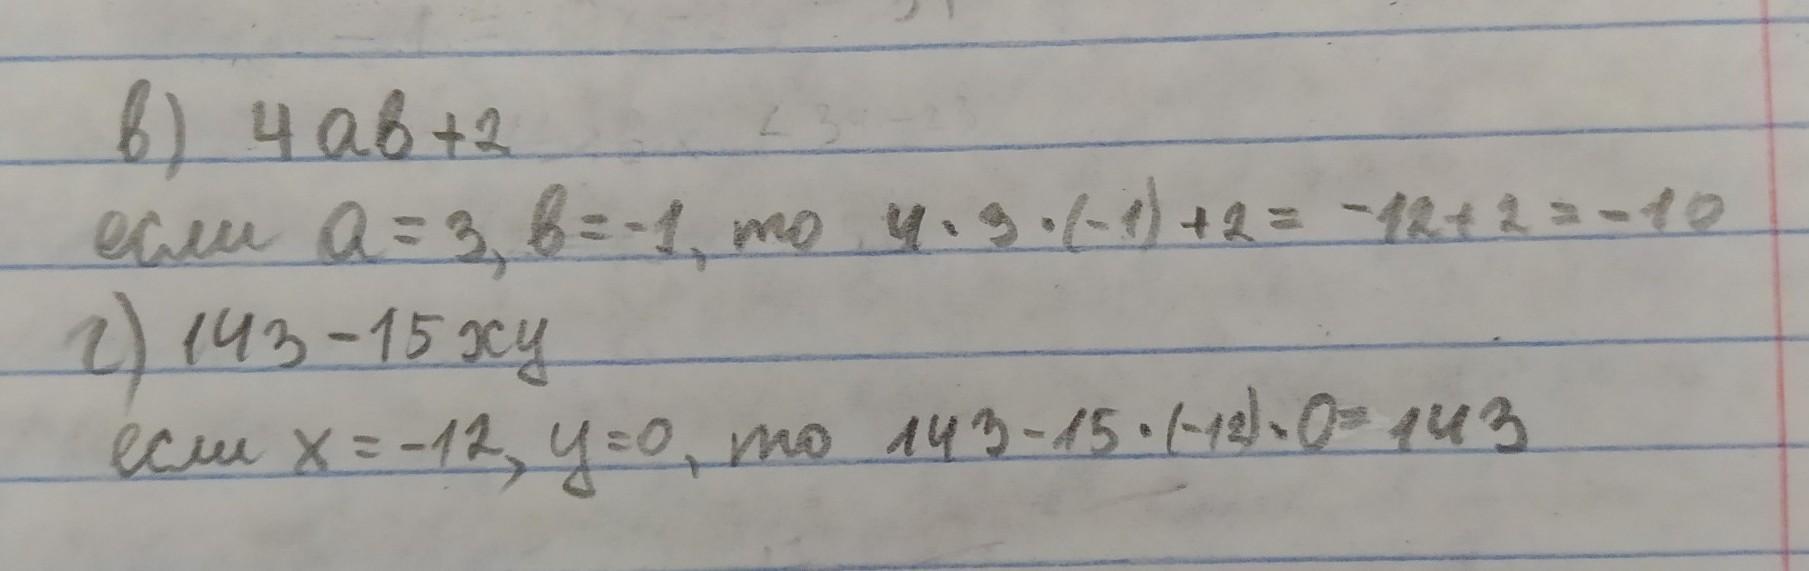 в) 4ab+2
если a=3, b=-1, то 4·3·(-1)+2=-12+2=-10
г) 143-15xy
если x=-12, y=0, то 143-15·(-12)·0=143